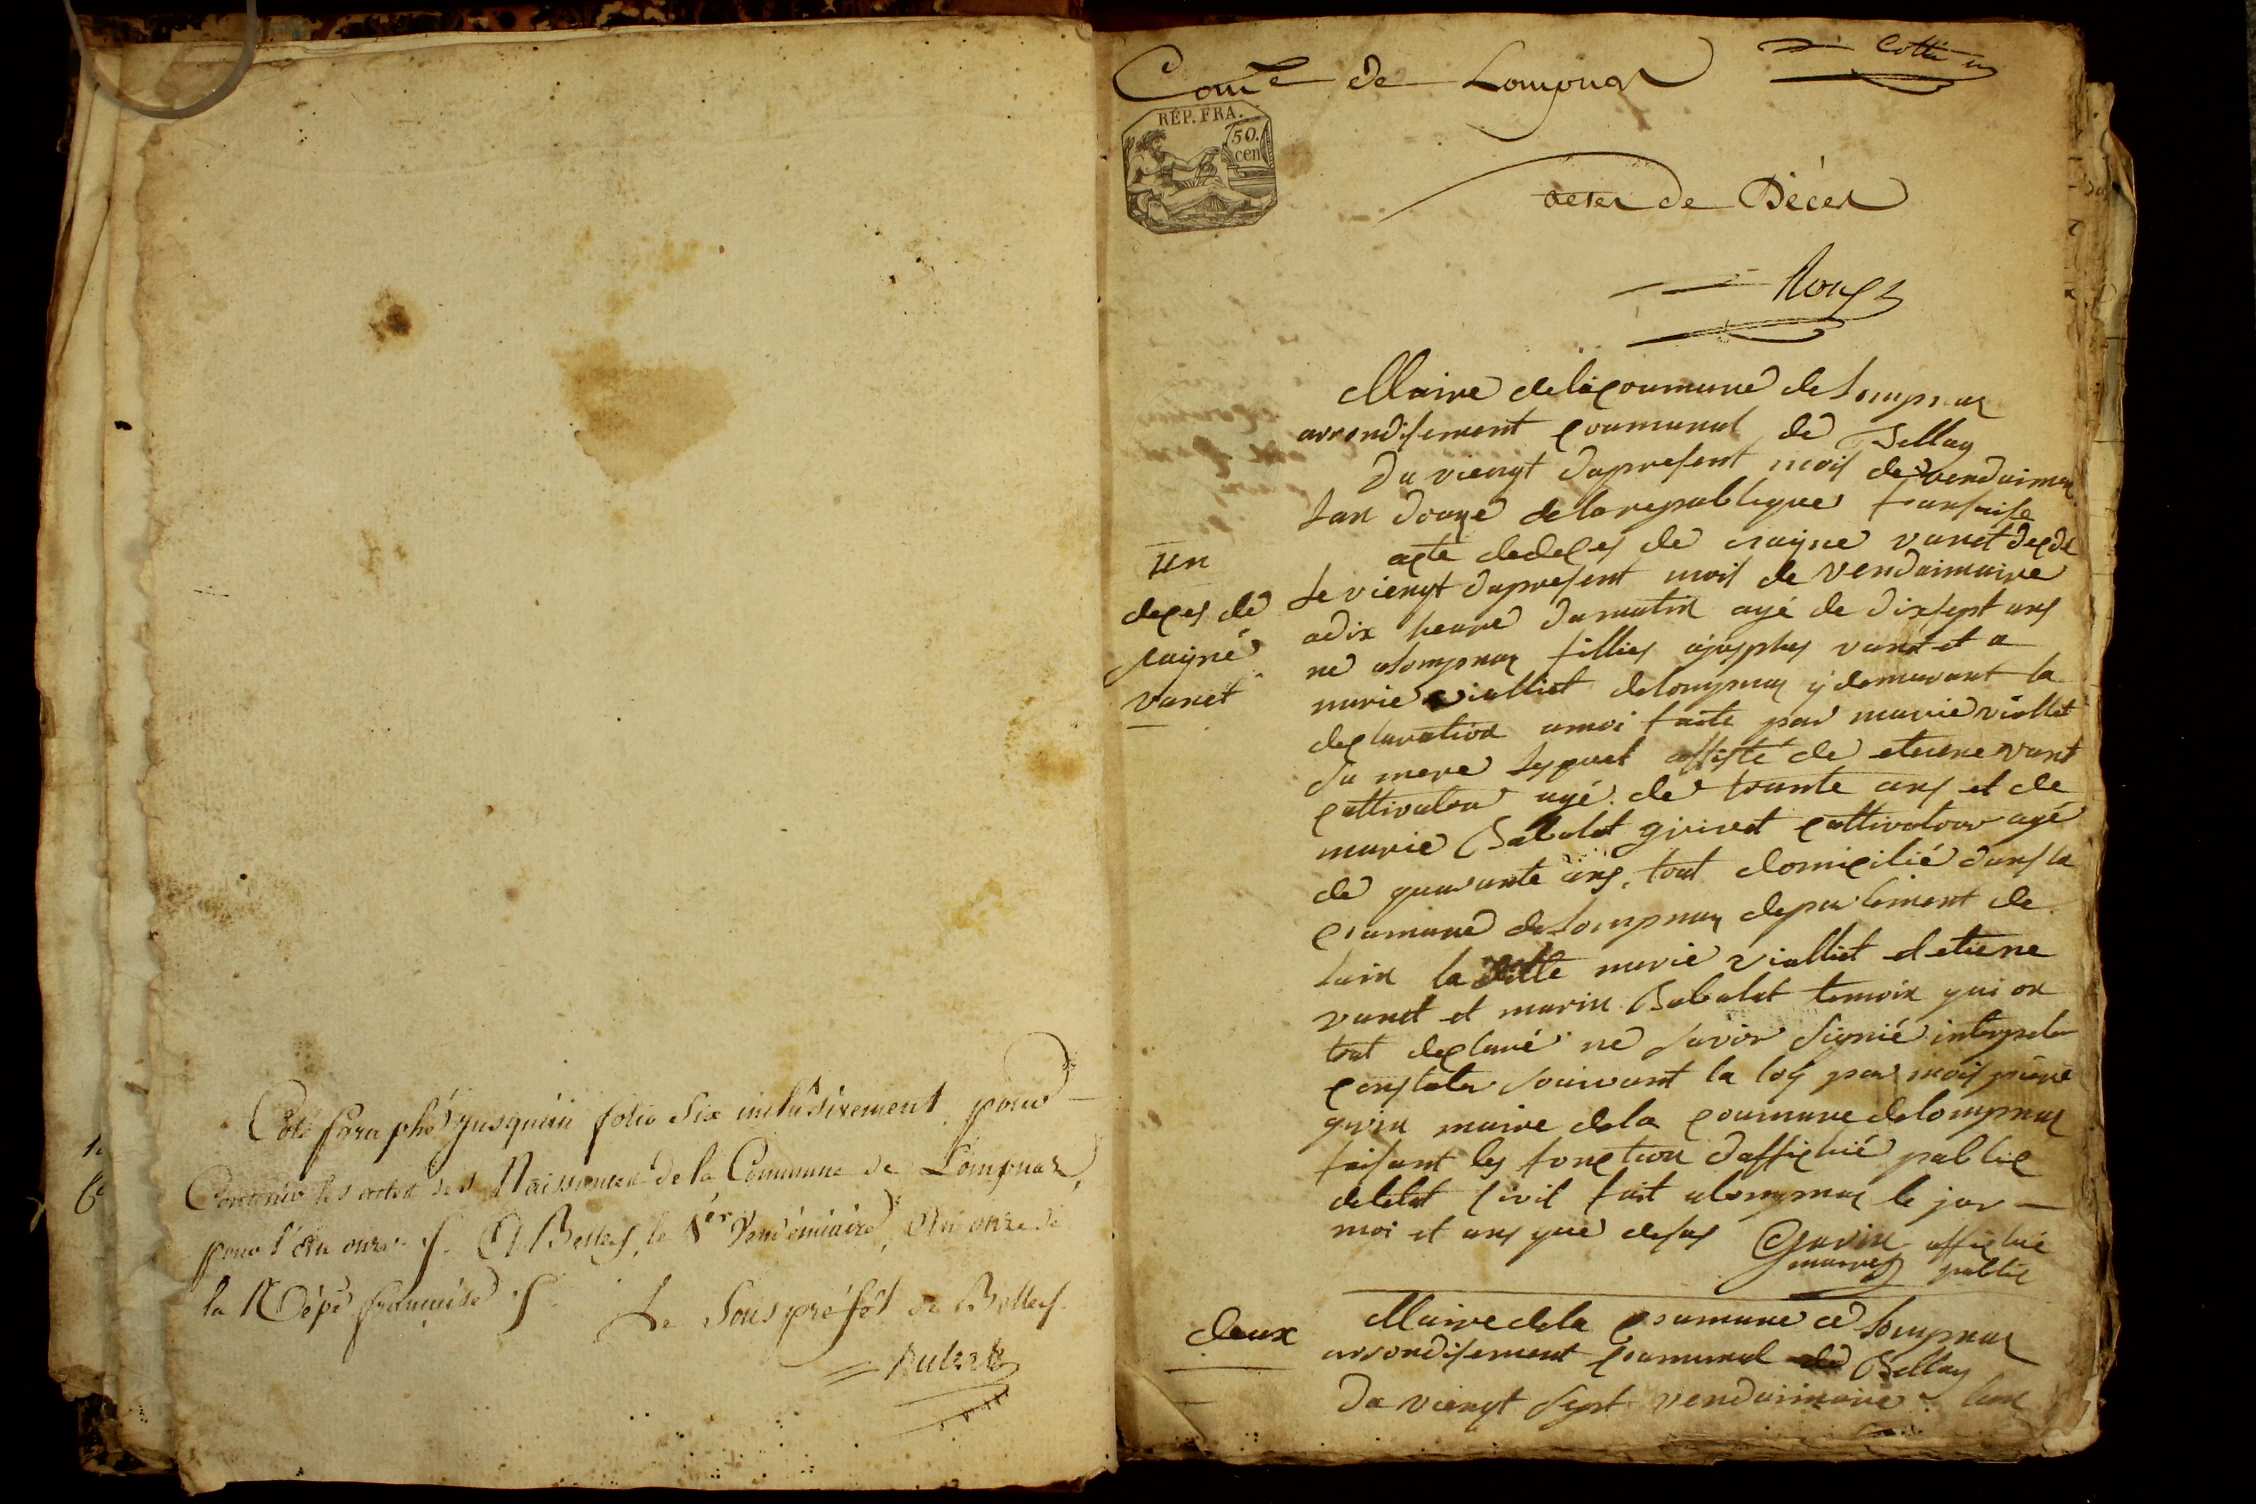 Coté paraphé jusquau folio Six inclusivement pour
Contenir les actes des Naissances de la Commune de Lompnaz,
pour l'An onze. A Belley, le 1er Vendémiaire, An onze de
la Répe française
Le Sous préfet de Belley
Comne de Lompnas
RÉP. FRA.
50.
cen
actes de Décès
Maire delacoumune de Lompnaz
arrondisement coumunal de Bellay
Du viengt dupresent mois de vendaimere
Lan douze delarepublique fransaise
Un
deces de
vanet
acte dedeces de vanet decde
Le viengt dupresent mois de vendaimaire
adix heure dumatin agé de dixsept ans
ne alompnaz filliey vanet et a
marie vialliet delompnaz y demeurant la
declaration amoi faite par marie viallet
Sa mere assisté de etiene vanet
cultivateur agé de trante ans et de
marie Babolat cultivateur agé
de quarante ans, tout domicilié dans la
coumune de Lompnaz departement de
Lain la ditte marie vialliet etiene
vanet et marin Babolat temoin qui on
tout declaré ne savoir signié
constater suivant la loy par mois
guvin maire dela coumune delompnaz
faisant les fonction daffichié public
deletat civil fait alompnaz le jour
moi et ans que desus
Guvin afficié
maire public
deux
Maire dela coumune de Lompnaz
arrondisement coumunal de Bellay
Du viengt sept vendaimaire lan